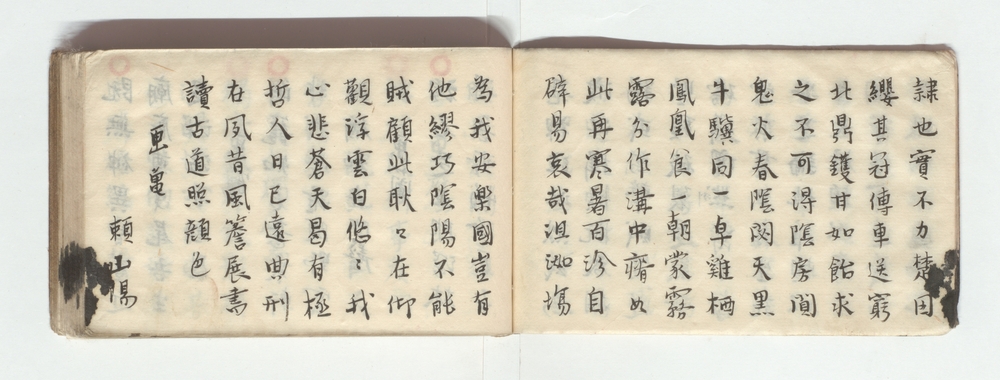 隷也實不力楚囚
纓其冠傳車送窮
北鼎鑊甘如飴求
之不可得陰房闃
鬼火春陰閟天黒
牛驥同一皁雞栖
鳳凰食一朝蒙霧
露分作溝中瘠如
此再寒暑百沴自
辟易哀哉沮洳塲
為我安樂國豈有
他繆巧陰陽不能
賊顧此耿々在仰
觀浮雲白悠〻我
心悲蒼天曷有極
哲人日已遠典刑
在夙昔風簷展書
讀古道照顔色
頼山陽